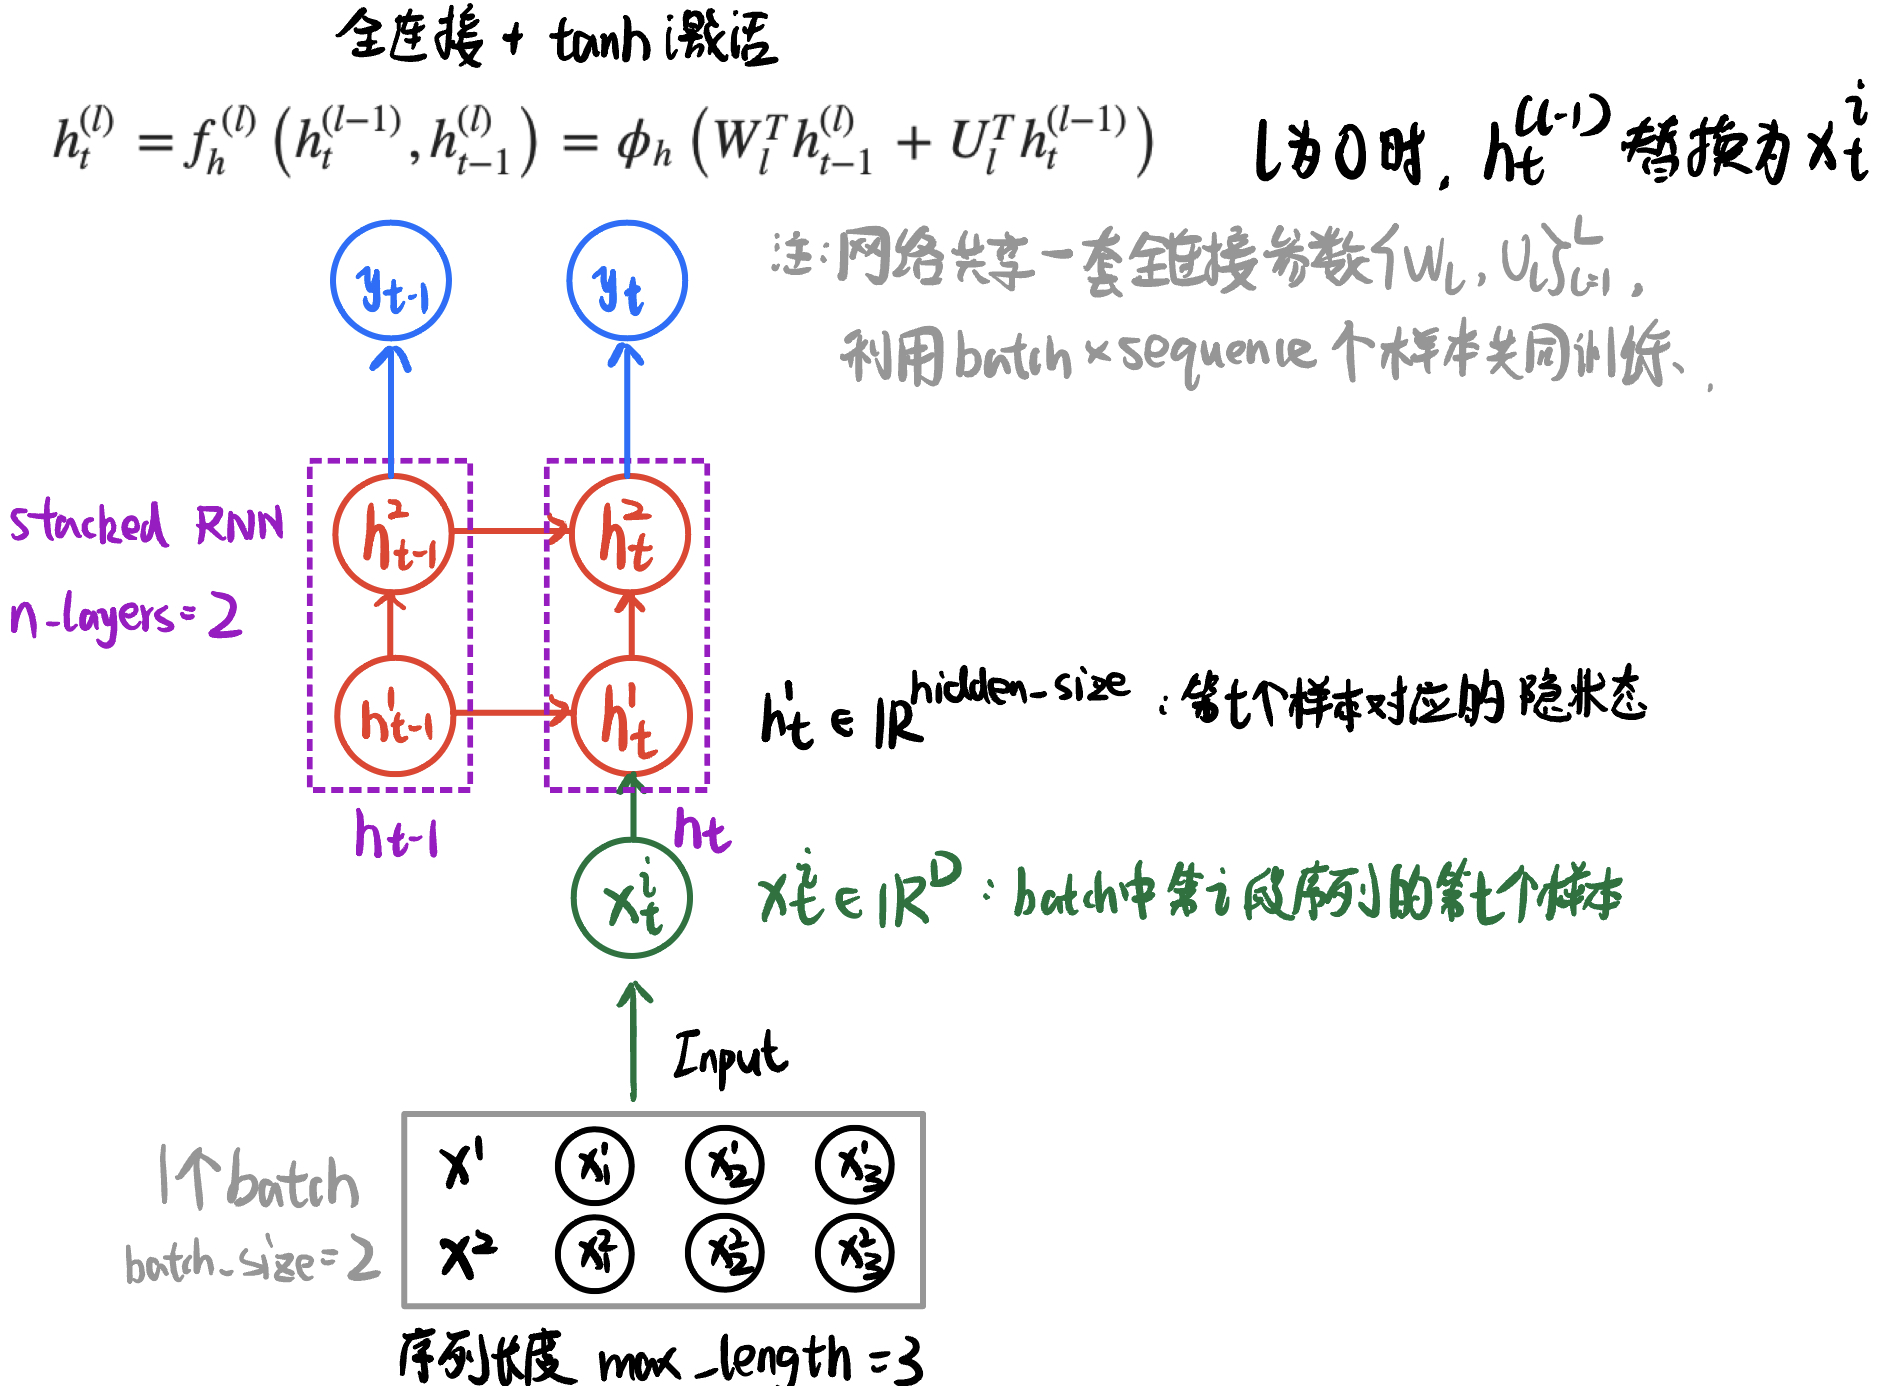 全连接 + tanh 激活
h_t^{(l)} = f_h^{(l)} (h_t^{(l-1)}, h_{t-1}^{(l)}) = ϕ_h (W_l^T h_{t-1}^{(l)} + U_l^T h_t^{(l-1)})
l为0时, h_t^{(l-1)} 替换为 x_t^i
注: 网络共享一套全连接参数{W_l, U_l}_{l=1}^L,
利用batch×sequence个样本共同训练、.
y_{t-1}
y_t
stacked RNN
n_layers=2
h_{t-1}^2
h_t^2
h_{t-1}^1
h_t^1
h_t^1 ∈ ℝ^{hidden_size} : 第t个样本对应的隐状态
h_{t-1}
h_t
x_t^i
x_t^i ∈ ℝ^D : batch中第i段序列的第t个样本
Input
1个batch
batch_size=2
x^1 x_1^1 x_2^1 x_3^1
x^2 x_1^2 x_2^2 x_3^2
序列长度 max_length=3